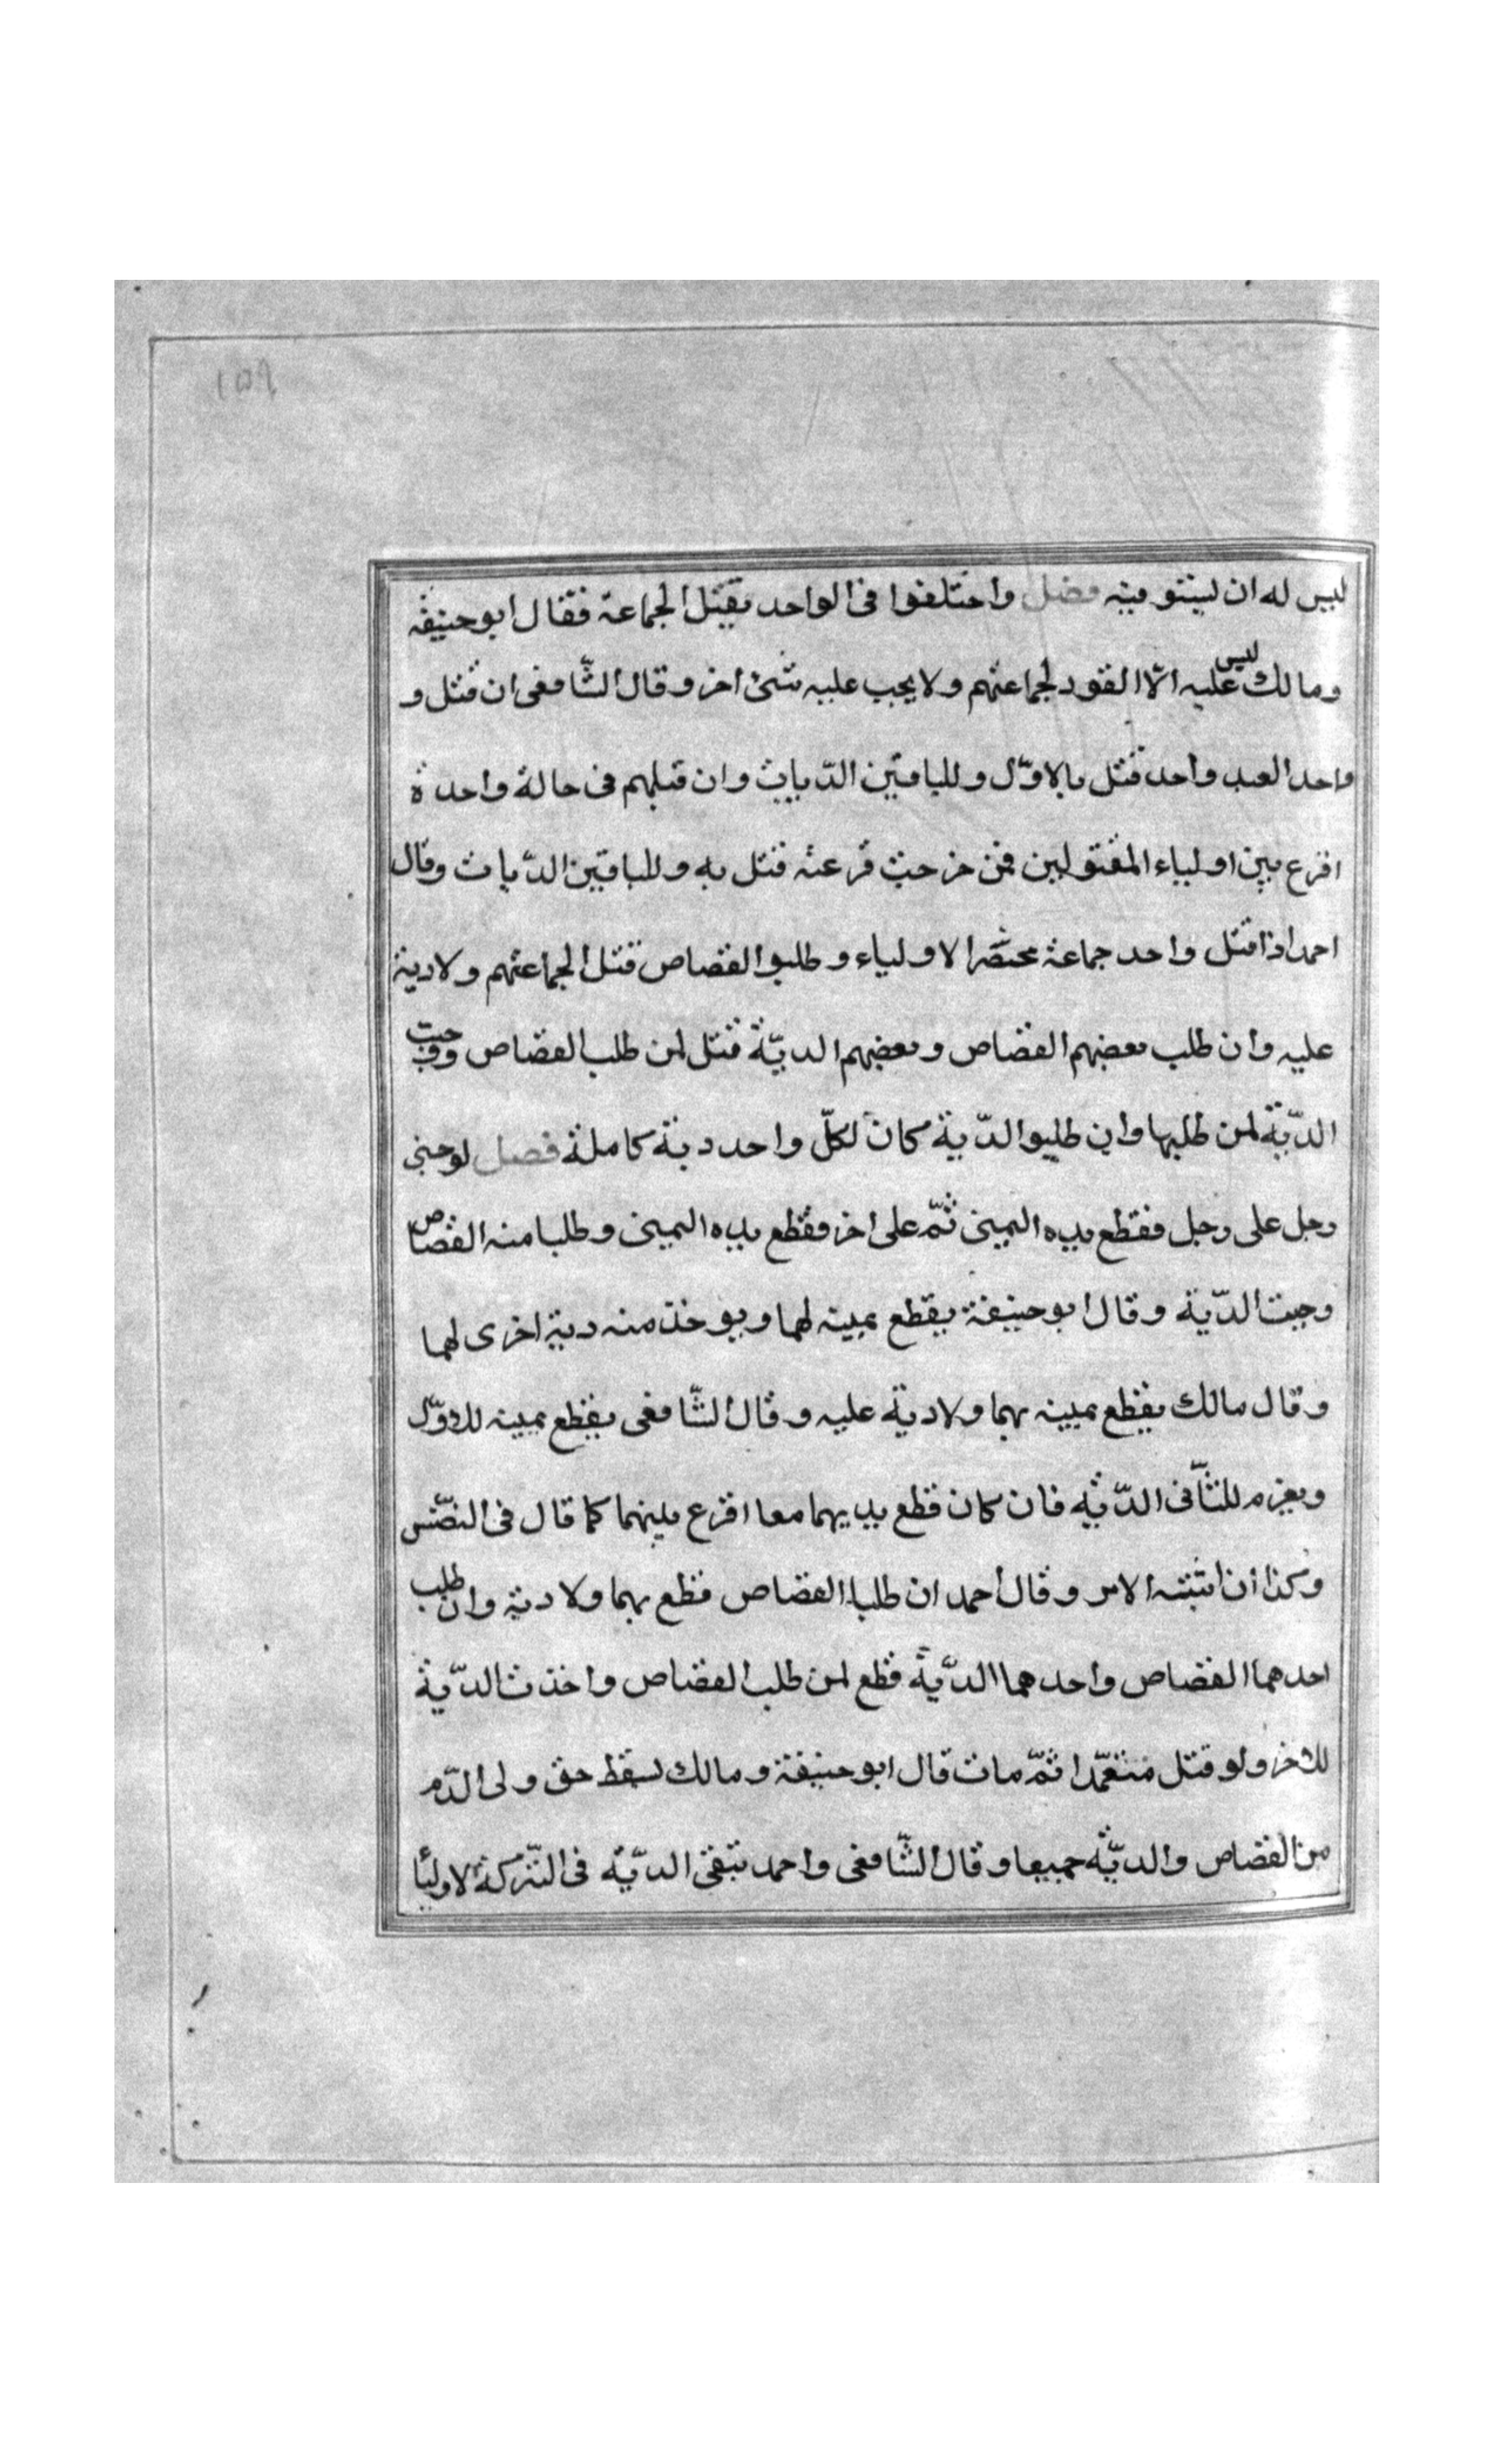 ١٥٩
ليس له ان يستوفيه فصل واختلفوا فى الواحد يقتل الجماعة فقال ابو حنيفه
ومالك ليس عليه الّا القود لجماعتهم ولا يجب عليه شئ اخر وقال الشّافعى ان قتل و
واحدا لعبد واحد قتل بالاوّل وللباقين الدّيات وان قتلهم فى حالة واحدة
اقرع بين اولياء المقتولين فمن خرجت قرعته قتل به وللباقين الدّيات وقال
احمد اذا قتل واحد جماعة محضر الاولياء وطلبوا القصاص قتل لجماعتهم ولادية
عليه وان طلب بعضهم القصاص وبعضهم الديّة قتل لمن طلب القصاص ووجبت
الدّية لمن طلبها وان طلبوا الدّية كان لكلّ واحد دية كاملة فصل لو جنى
رجل على رجل فقطع يده اليمينى ثمّ على اخر فقطع يده اليمينى وطلبا منه القصاص
وجبت الدّية وقال ابو حنيفة يقطع يمينه لهما ويوخذ منه دية اخرى لهما
وقال مالك يقطع يمينه بهما ولادية عليه وقال الشّافعى يقطع يمينه للاوّل
ويغرم للثّانى الدّية فان كان قطع يديهما معا اقرع بينهما كما قال فى النفس
وكذا ان اشتبه الامر وقال احمد ان طلبا القصاص قطع بهما ولا دية وان طلب
احدهما القصاص واحدهما الدّية قطع لمن طلب القصاص واخذت الدّية
للاخر ولو قتل متعمّدا ثمّ مات قال ابو حنيفة ومالك يسقط حق ولى الدّم
من القصاص والديّة جميعا وقال الشّافعى واحمد تبقى الديّة فى التّركة لاوليا